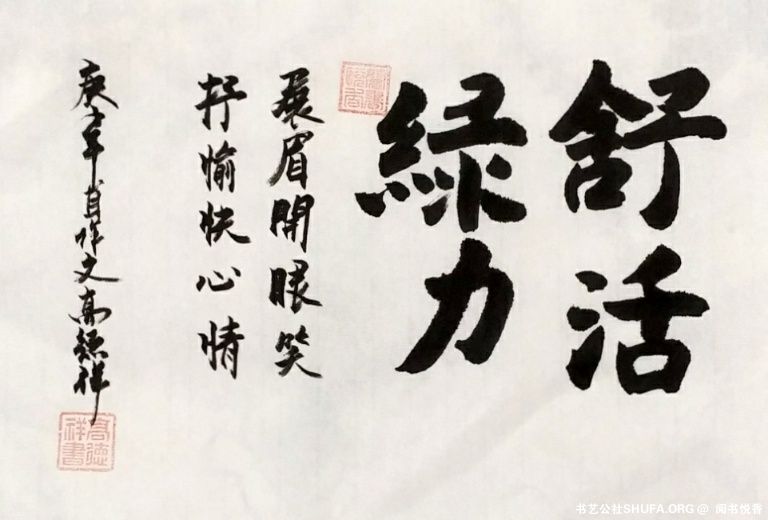 舒活
綠力
展眉開眼笑
抒愉快心情
庚子年自作文高德祥
高德祥書
书艺公社SHUFA.ORG@ 闻书悦香